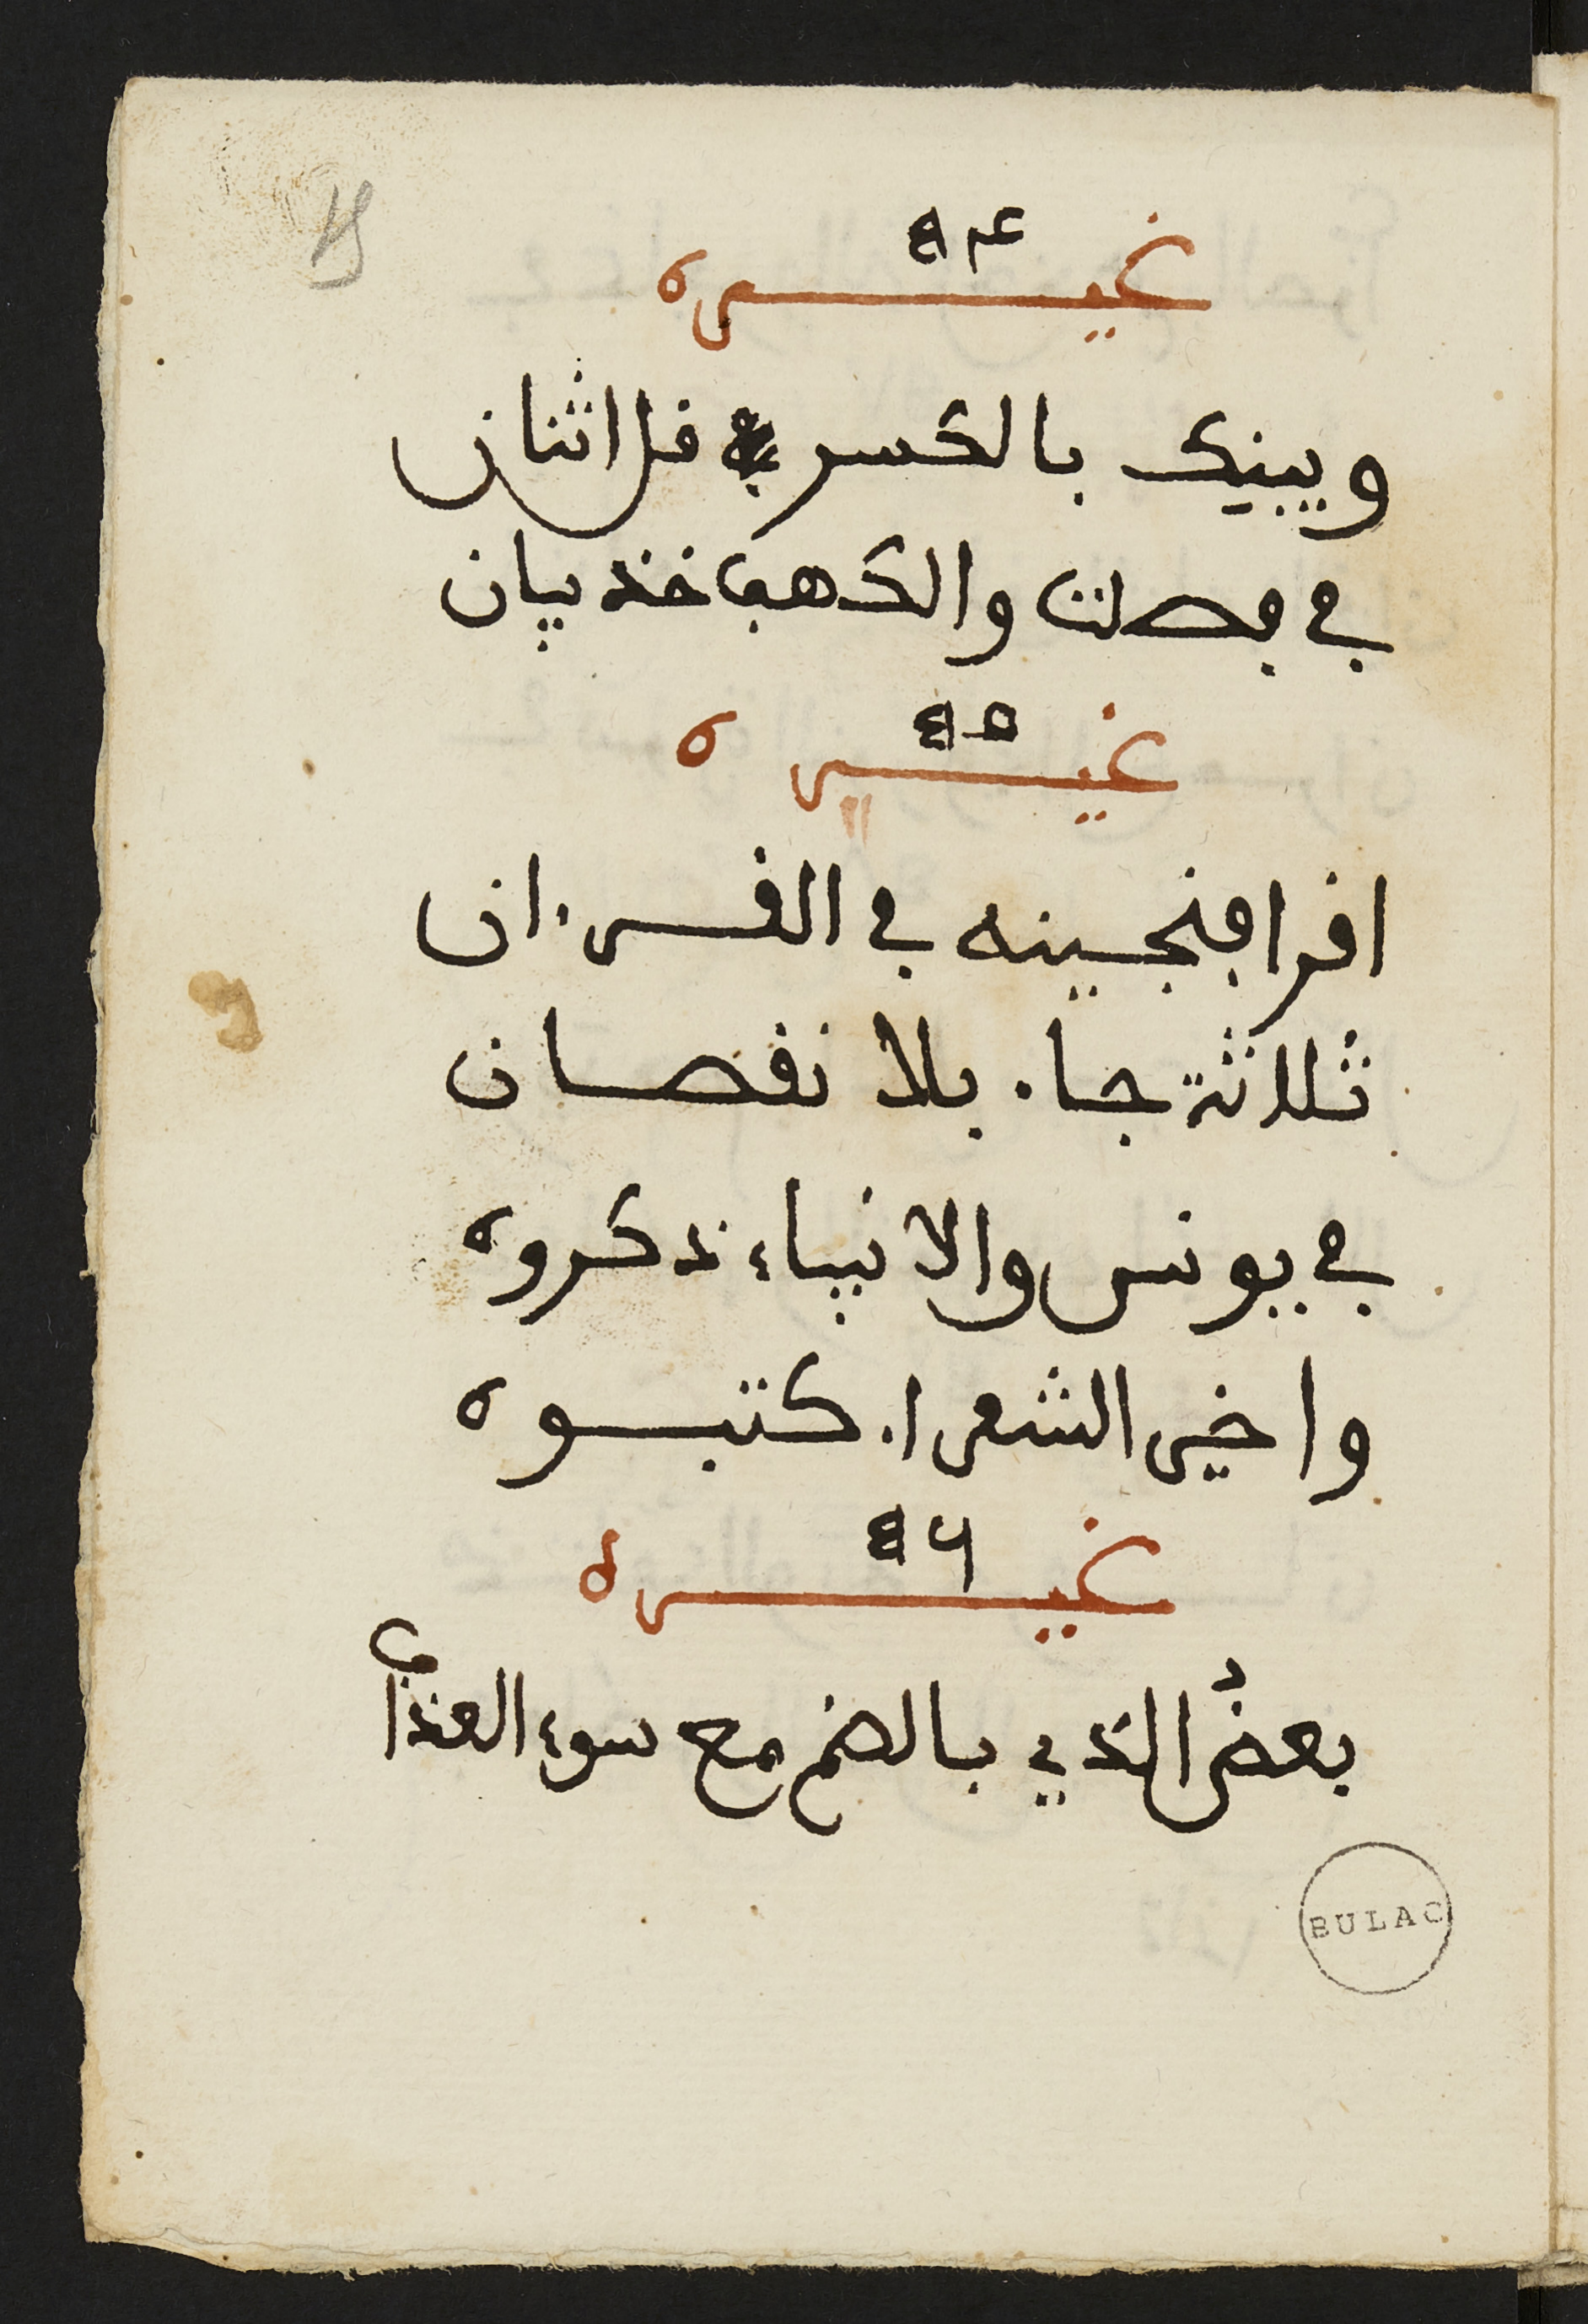 ٤٤
غيره
وبينك بالكسر قل اثنان
في فصلت والكهف خذ بيان
٤٥
غيره
اقرا فنجينه في القرءان
ثلاثة جاء بلا نقصان
في يونس والانبياء ذكروه
واخير الشعراء كتبوه
٤٦
غيره
بعضُ الذي بالضم مع سوء العذاب
BULAC